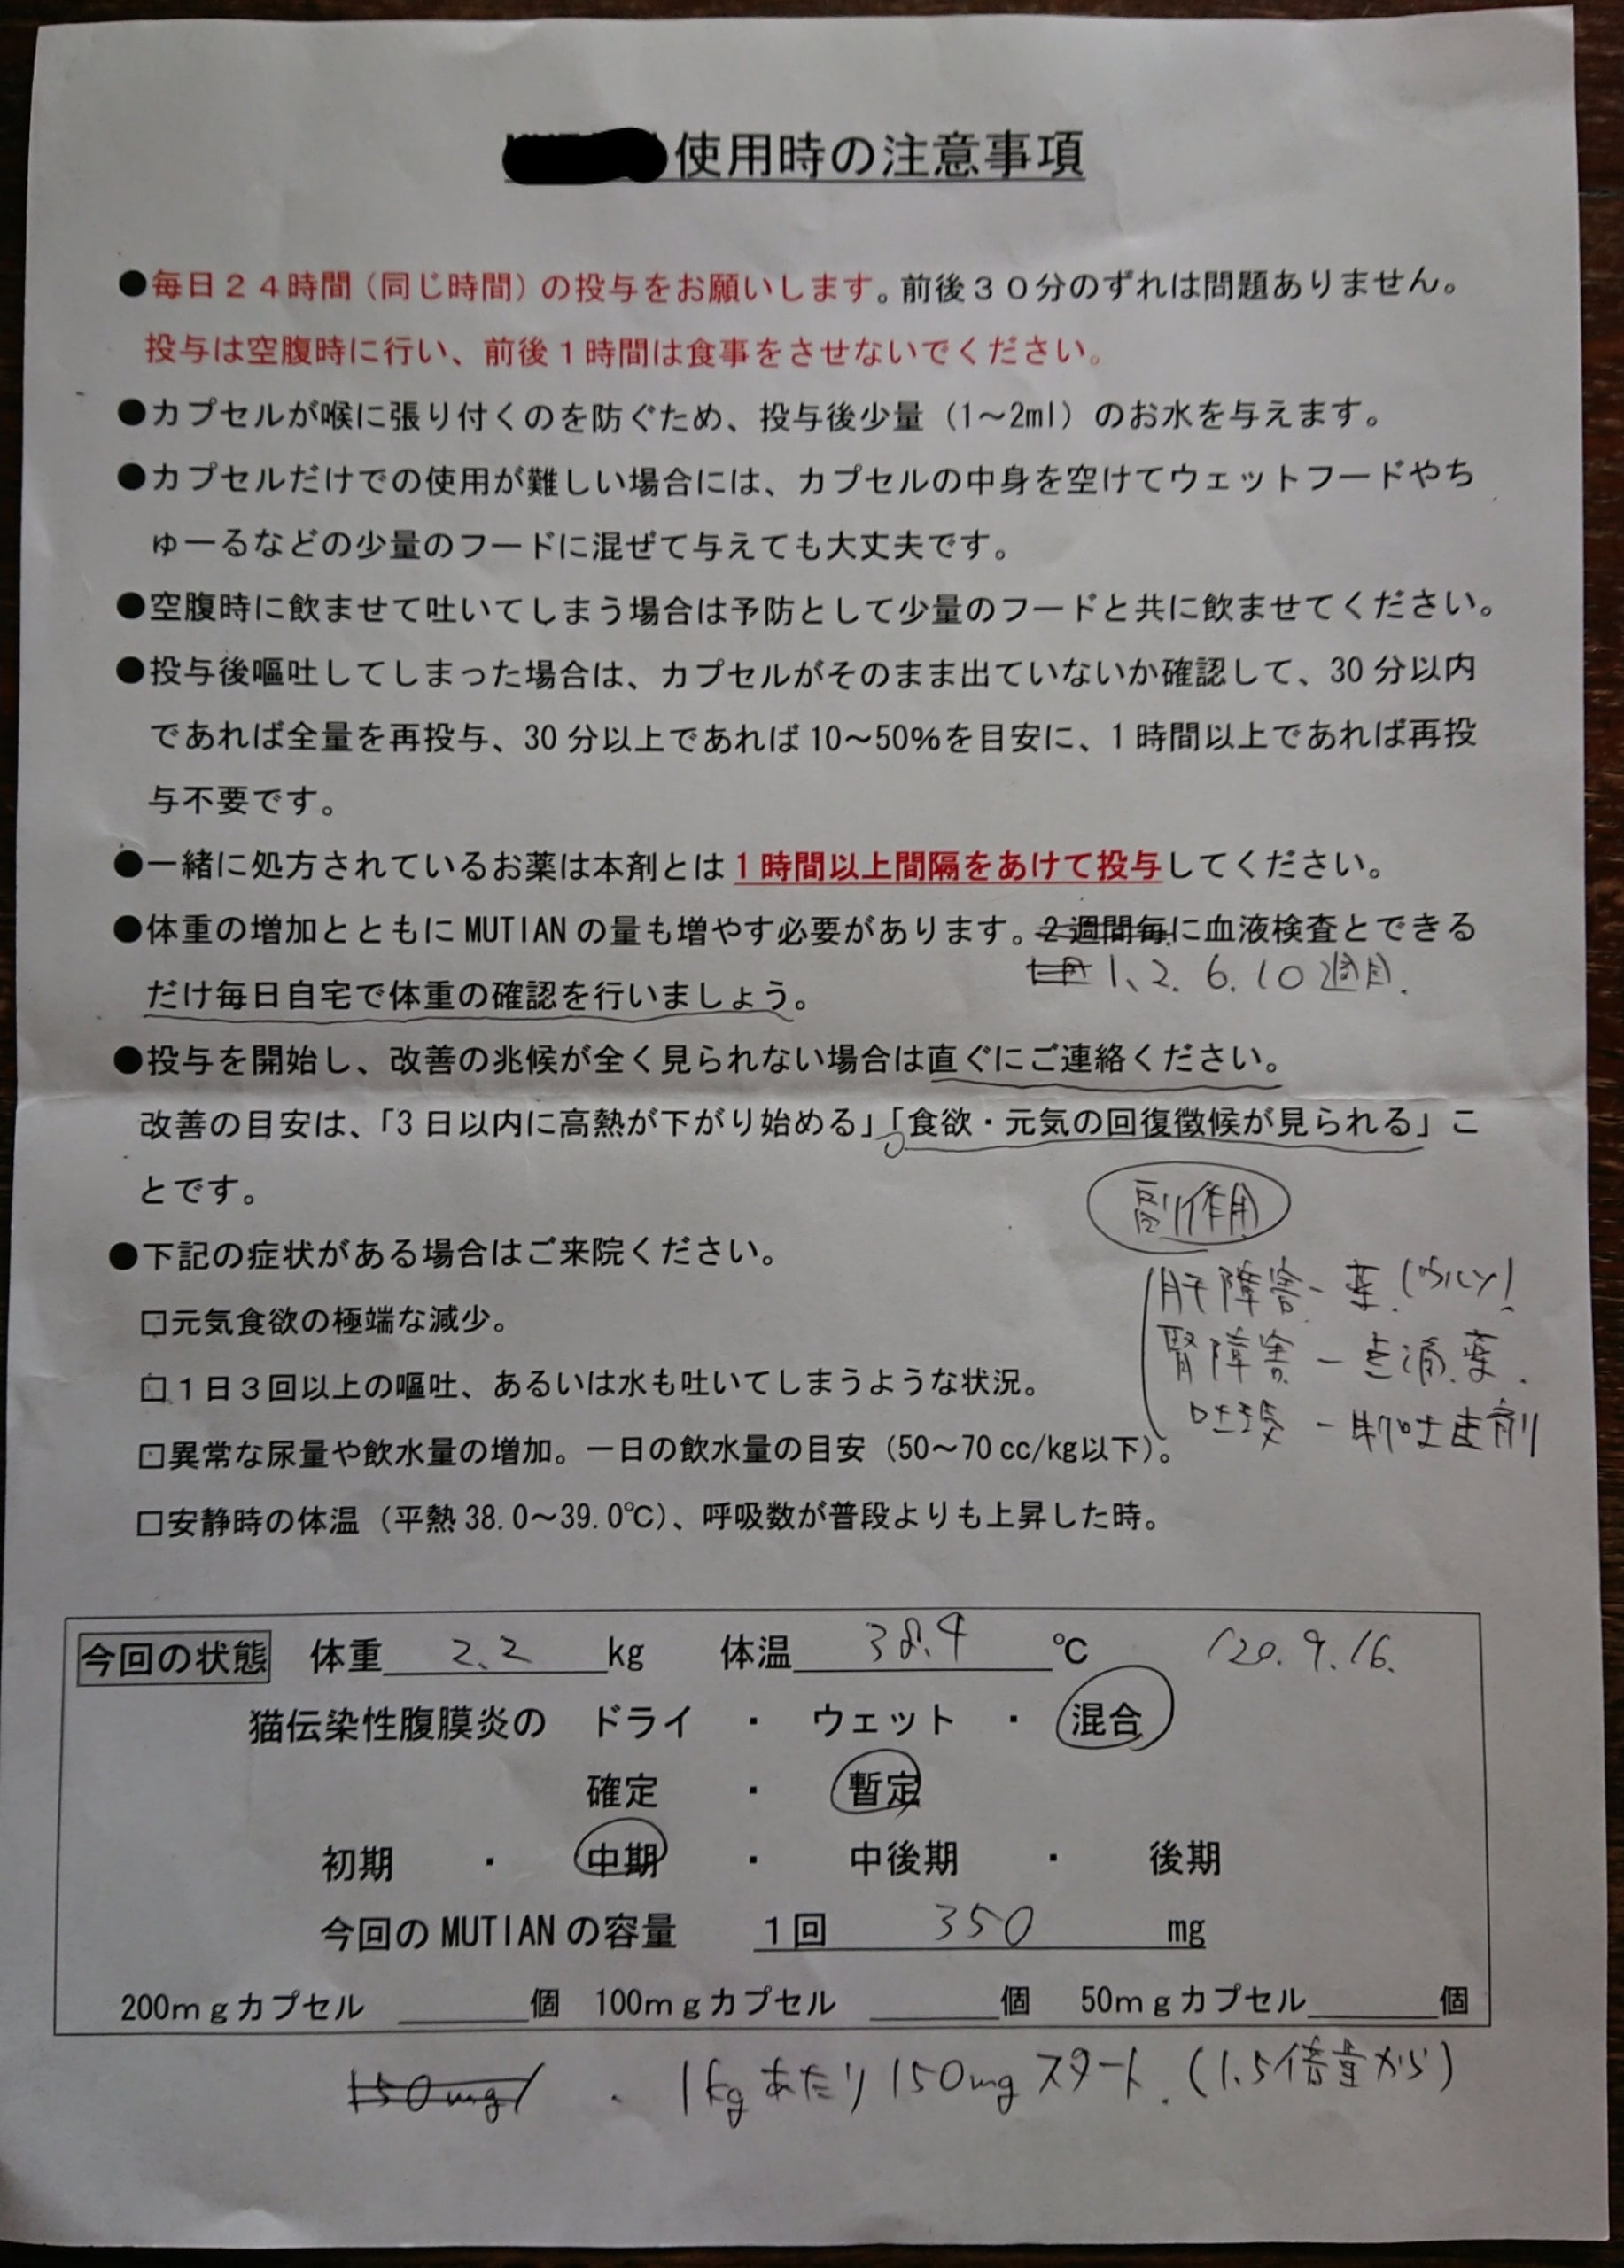 使用時の注意事項
●毎日２４時間（同じ時間）の投与をお願いします。前後３０分のずれは問題ありません。
投与は空腹時に行い、前後１時間は食事をさせないでください。
●カプセルが喉に張り付くのを防ぐため、投与後少量（1～2ml）のお水を与えます。
●カプセルだけでの使用が難しい場合には、カプセルの中身を空けてウェットフードやち
ゅーるなどの少量のフードに混ぜて与えても大丈夫です。
●空腹時に飲ませて吐いてしまう場合は予防として少量のフードと共に飲ませてください。
●投与後嘔吐してしまった場合は、カプセルがそのまま出ていないか確認して、30 分以内
であれば全量を再投与、30 分以上であれば 10～50%を目安に、1 時間以上であれば再投
与不要です。
●一緒に処方されているお薬は本剤とは１時間以上間隔をあけて投与してください。
●体重の増加とともに MUTIAN の量も増やす必要があります。２週間毎に血液検査とできる
1、2. 6. 10週目.
だけ毎日自宅で体重の確認を行いましょう。
●投与を開始し、改善の兆候が全く見られない場合は直ぐにご連絡ください。
改善の目安は、「3 日以内に高熱が下がり始める」「食欲・元気の回復徴候が見られる」こ
とです。
副作用
●下記の症状がある場合はご来院ください。
肝障害 - 薬.
□元気食欲の極端な減少。
腎障害 - 点滴.薬.
□１日３回以上の嘔吐、あるいは水も吐いてしまうような状況。
吐き気 - 制吐剤
□異常な尿量や飲水量の増加。一日の飲水量の目安（50～70 cc/kg以下）。
□安静時の体温（平熱 38.0～39.0℃）、呼吸数が普段よりも上昇した時。
今回の状態 体重 2.2 kg 体温 38.4 ℃ '20.9.16.
猫伝染性腹膜炎の ドライ ・ ウェット ・ 混合
確定 ・ 暫定
初期 ・ 中期 ・ 中後期 ・ 後期
今回の MUTIAN の容量 １回 350 mg
200ｍｇカプセル 個 100ｍｇカプセル 個 50ｍｇカプセル 個
150mg/ . 1kgあたり150mgスタート.（1.5倍量から）